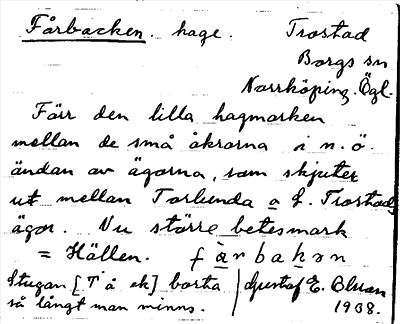 Fårbacken. hage. Trostad
Borgs sn
Norrköping. Ögl.
Förr den lilla hagmarken
mellan de små åkrarna i n.ö.
ändan av ägorna, som skjuter
ut mellan Torlunda o L. Trostads
ägor. Nu större betesmark
= Hällen. fårbakən
Stugan [T å ek] borta
så långt man minns.
Gustaf E. Bluan
1938.